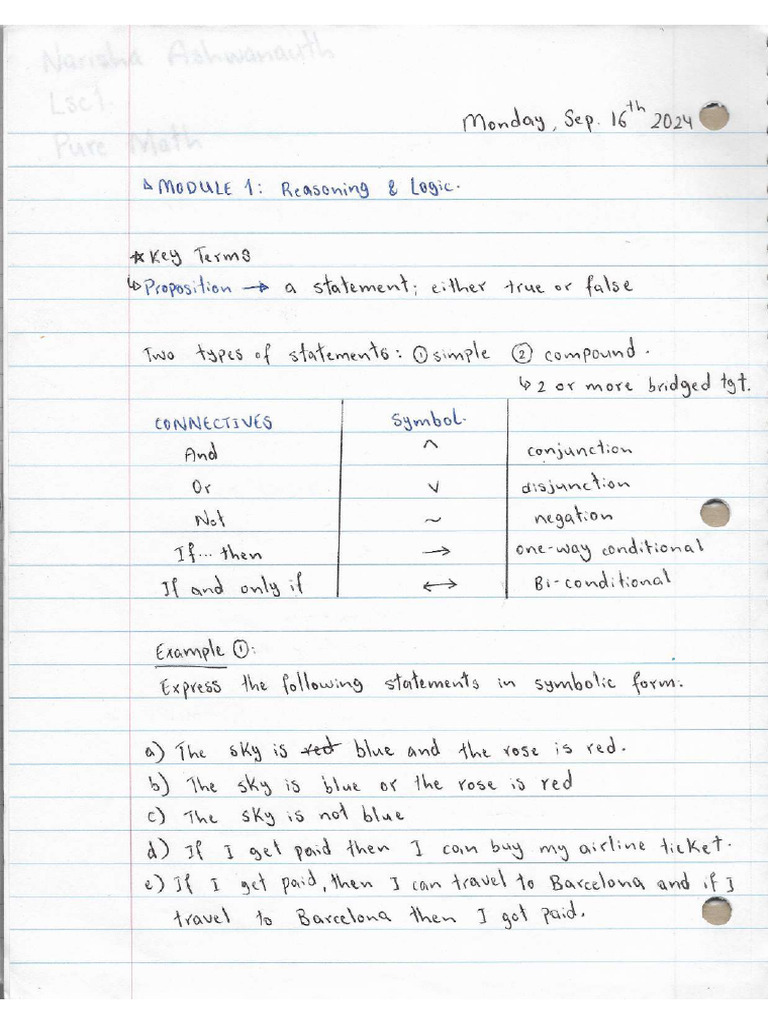 Narisha Ashwanauth
Lsc1.
Pure Math
Monday, Sep. 16th 2024
MODULE 1: Reasoning & Logic.
☆ Key Terms
↳ Proposition → a statement; either true or false
Two types of statements: ① simple ② compound.
↳ 2 or more bridged tgt.
CONNECTIVES Symbol.
And ^ conjunction
Or v disjunction
Not ~ negation
If... then → one-way conditional
If and only if ↔ Bi-conditional
Example ①:
Express the following statements in symbolic form:
a) The sky is red blue and the rose is red.
b) The sky is blue or the rose is red
c) The sky is not blue
d) If I get paid then I can buy my airline ticket.
e) If I get paid, then I can travel to Barcelona and if I
travel to Barcelona then I got paid.